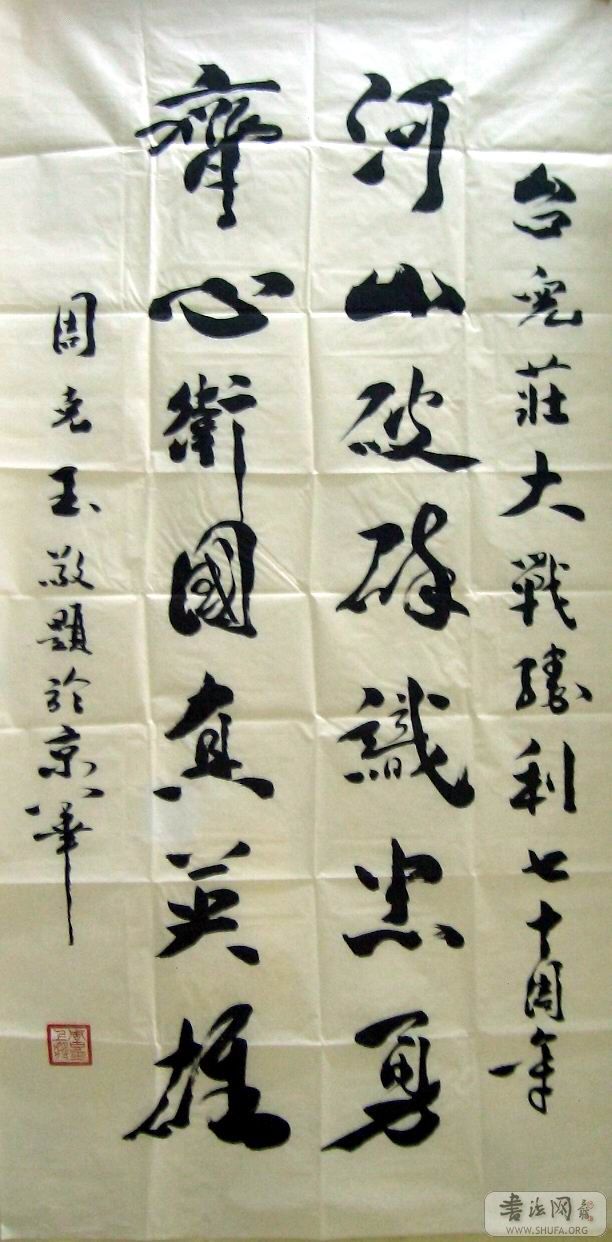 台兒莊大戰勝利七十周年
河山破碎識忠勇
齊心衛國真英雄
周克玉敬題於京華
書法网
WWW.SHUFA.ORG